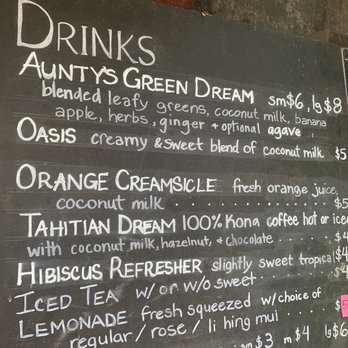 DRINKS
AUNTY'S GREEN DREAM sm$6, lg$8
blended leafy greens, coconut milk, banana
apple, herbs, ginger + optional agave
OASIS creamy & sweet blend of coconut milk $5
ORANGE CREAMSICLE fresh orange juice,
coconut milk . . . . . . . . . . . . $5
TAHITIAN DREAM 100% Kona coffee hot or iced
with coconut milk, hazelnut, + chocolate . . . . $4
HIBISCUS REFRESHER slightly sweet tropical $4
ICED TEA w/ or w/o sweet . . . . . $
LEMONADE fresh squeezed w/choice of
regular / rose / li hing mui . . .
sm $3 m $4 lg $6